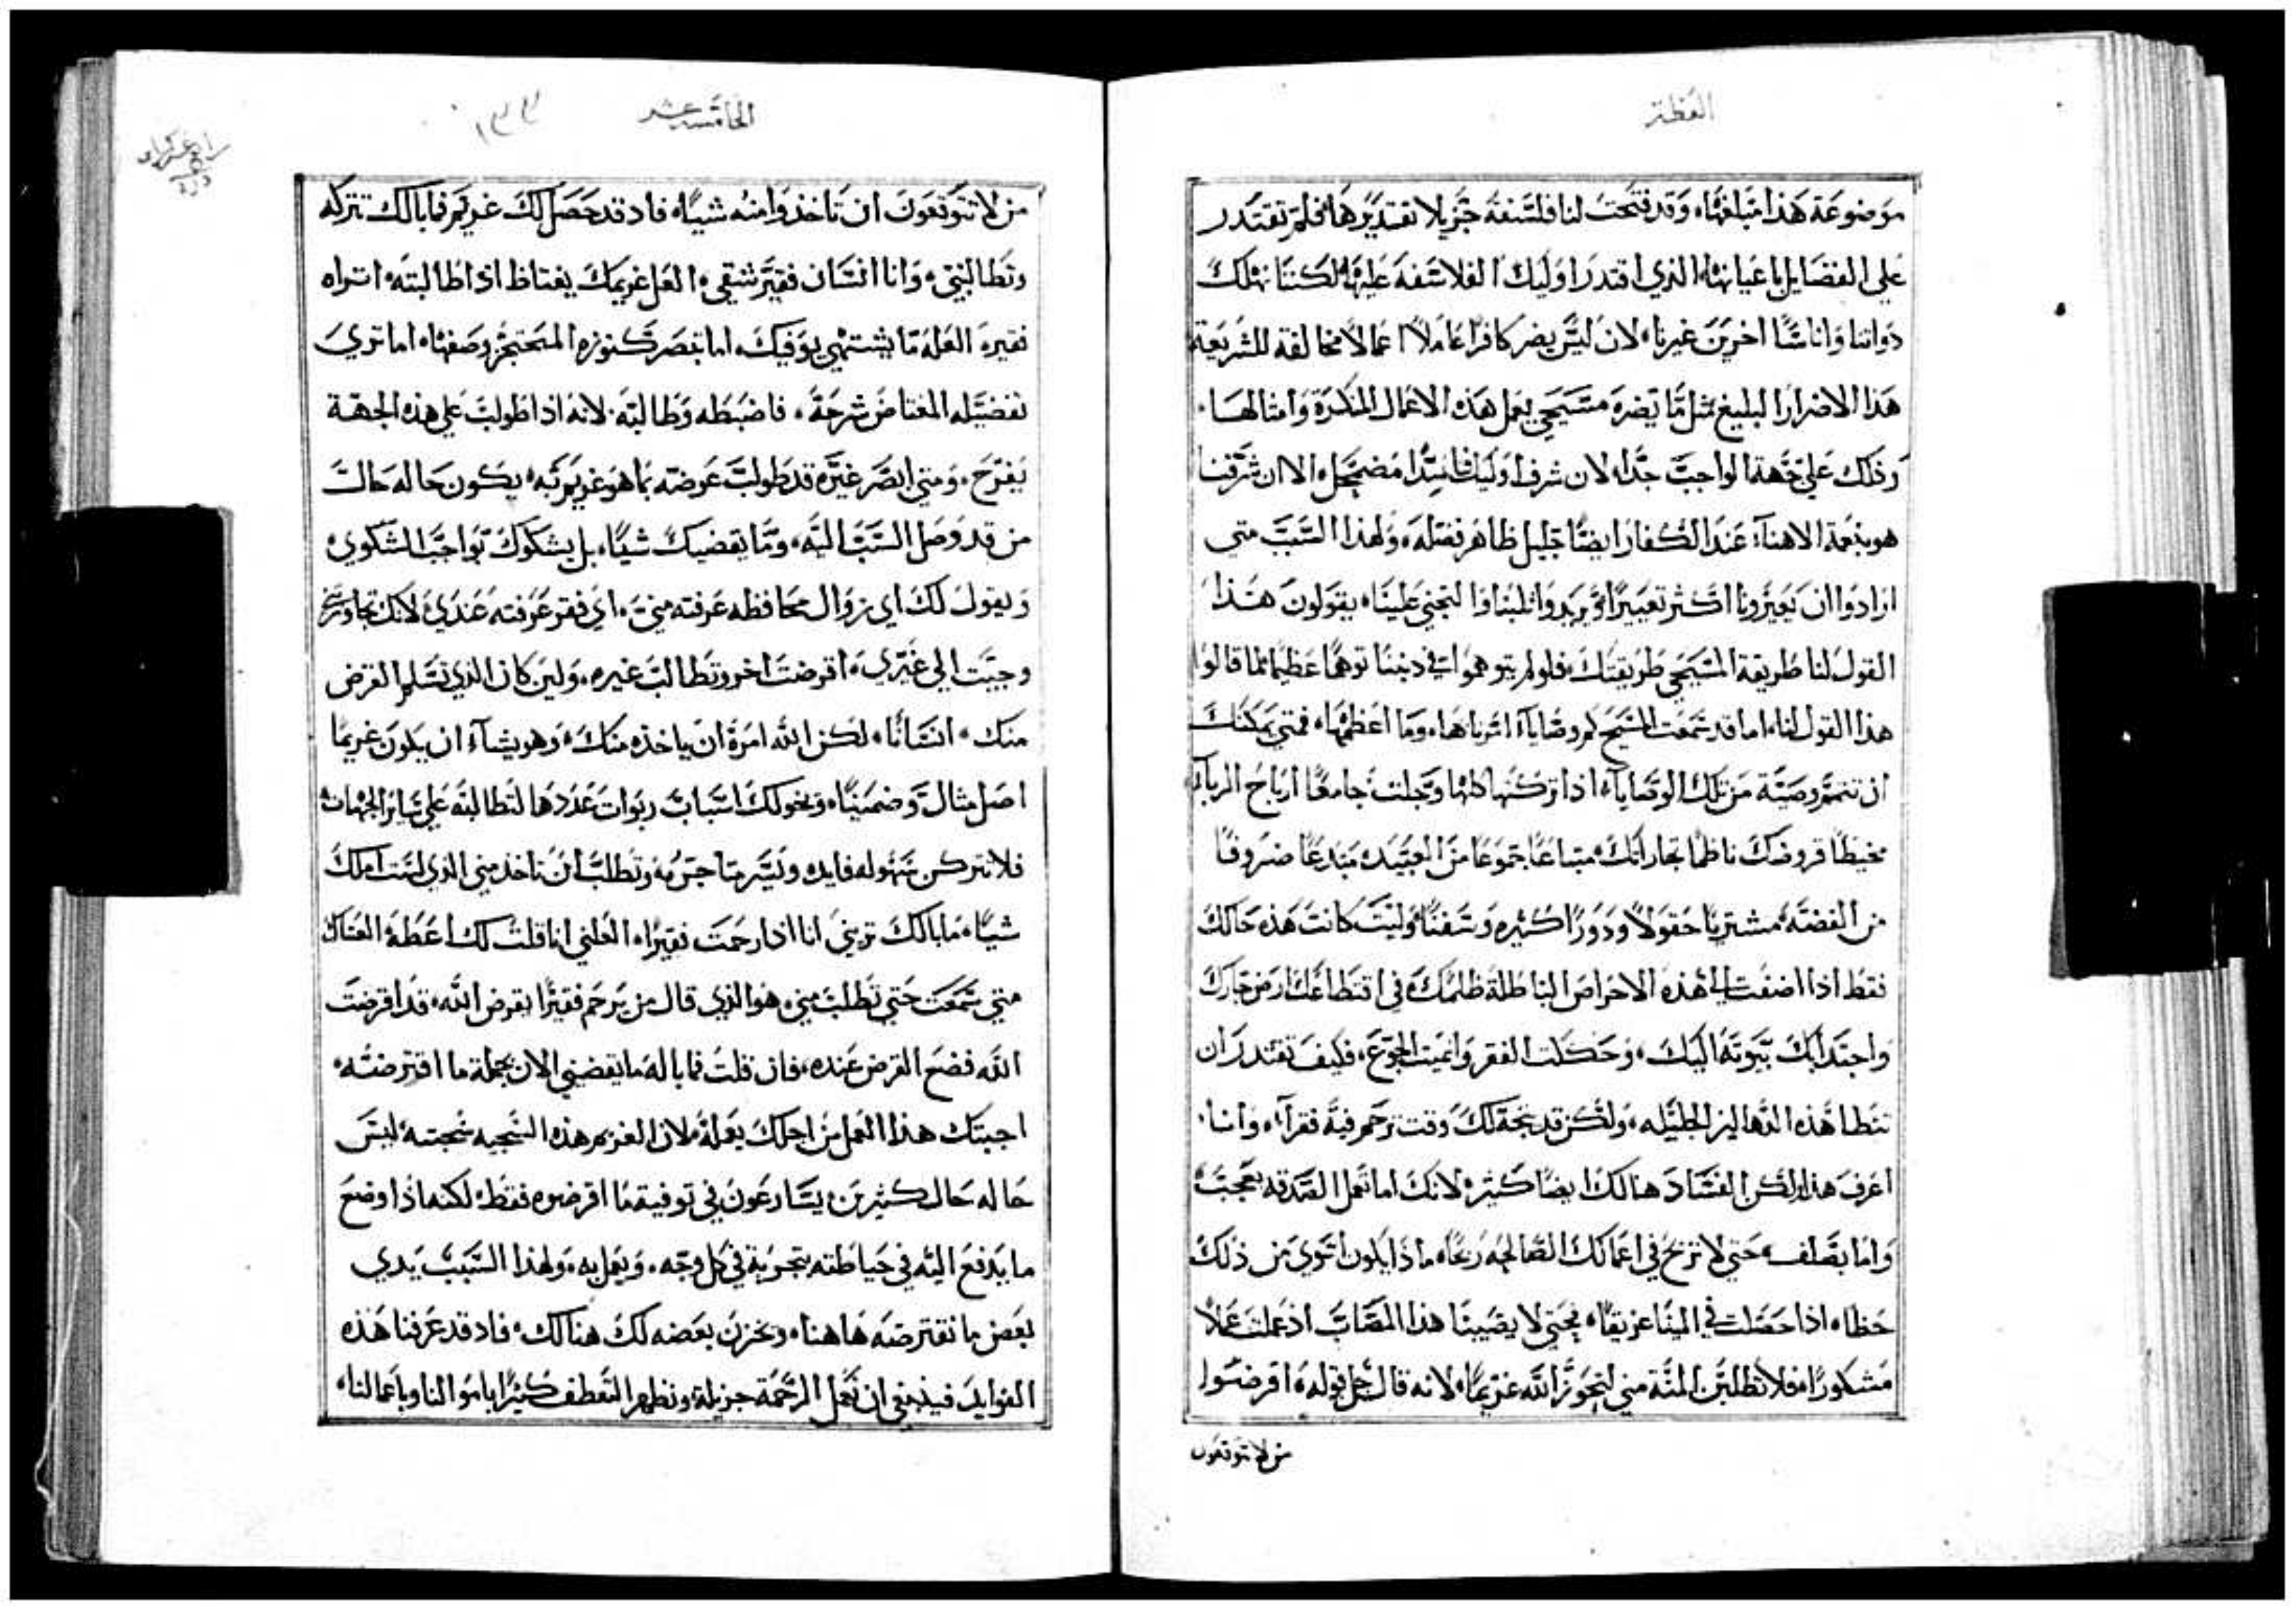 العظة
موضوعة هذا مبلغها، وقد فتحت لنا فلسفة جزيلا تقديرها فلم تقتدر
علي الفضايل باعيانها الذي اقتدر اوليك الفلاسفة عليها، لكننا نهلك
ذواتنا واناسًا اخرين غيرنا، لان ليس يضر كافرًا عاملاً اعمالاً مخالفة للشريعة
هذا الاضرار البليغ مثل ما تضره مسيحي يعمل هذه الاعمال المنكرة وامثالها.
وذلك علي جهة الواجب جدًا، لان شرف اوليك فاسدًا مضمحل، الا ان شرفنا
هو بنعمة الاهنا، عند الكفار ايضًا جليل ظاهر فضله، ولهذا السبب متي
ارادوا ان يعيرونا اكثر تعييرًا ويريدوا ثلبنا والتجني علينا، يقولون هذا
القول لنا طريقة المسيحي طريقتك، فلو لم يتوهموا في ديننا توهمًا عظيمًا لما قالوا
هذا القول لنا، اما قد سمعت المسيح كم وصايا، امرنا ها، وما اعظمها، فمتي يمكنك
ان تتمم وصية من تلك الوصايا، اذا تركتها كلها وجلت جامعًا ارباح الربا
مخيطًا قروضك ناظمًا تجاراتك، مبتاعًا جموعًا من العبيد، مبدعًا ضروفًا
من الفضة، مشتريًا حقولاً ودورًا كثيره وسفنًا، وليت كانت هذه حالك
فقط اذا اضفت الي هذه الاحراص الباطلة ظلمك في اقتطاعك ارض جارك
واجتذابك بيوته اليك، وحكلت الفقر وانميت الجوع، فكيف تقتدر ان
تتطا هذه الدهاليز الجليله، ولكن قد يتجه لك وقت ترحم فية فقرآ، وانا.
اعرف هذا، ولكن الفساد هنالك ايضًا كثيره لانك اما تعمل الصدقه بعجب،
واما بصلف، حتي لا تربح في اعمالك الصالحه ربحًا، ماذا يكون اتوي من ذلك
حظا، اذا حصلت في المينا غريقًا، فحتي لا يصيبنا هذا المصاب اذ عملت عملاً
مشكورًا، فلا تطلبن المنة مني لتحوز الله غريمًا، لانه قال جل قوله، اقرضوا
من لا توقعون
الخامسة عشر
١٣٣
من لا تتوقعون ان تاخذوا منه شيًا، فاد قد حصل لك غريم فما بالك تتركه
وتطالبني، وانا انسان فقير شقي، العل غريمك يغتاظ اذا طالبته، اتراه
فقيره العله ما يشتهي يوفيك، اما تبصر كنوزه المحتجز وصفها، اما تري
تفضيله المغتاض شرحة، فاضبطه وطالبه. لانه اذا طولبت علي هذه الجهة
يفرح. ومتي ابصر غيره قد طولب عوضه بما هو غريم به، يكون حاله حال
من قد وصل السب اليه، وما يقضيك شيًا، بل يشكوك بواجب الشكوي،
ويقول لك اي زوال محافظه عرفته مني، اي فقر عرفته عندي، لانك تجاوزتني
وجيت الي غيري، اقرضت اخر وتطالب غيره، ولين كان الذي تسلم القرض
منك، انسانًا، لكن الله امره ان ياخذه منك، وهو يشآ ان يكون غريمًا
اصل مثال وضمينًا، ويخولك اسباب ربوات عددها لتطالبه علي ساير الجهات
فلا تتركن سهوله فايده وتيسر ما جرمه، وتطلب ان تاخذ مني الذي لست املك
شيًا، ما بالك تريني انا اذا رحمت فقيرًا، العلني انا قلت لك اعطه العلك
متي سمعت حتي تطلب مني، هو الذي قال من يرحم فقيرًا يقرض الله، قد اقرضت
الله فضع القرض عنده، فان قلت فما باله ما يقضيني الان جملة ما اقترضته،
اجبتك هذا العمل من اجلك يعمله، لان الغريم هذه السجيه سجيته، ليس
حاله حال كثيرين، يسارعون في توفية ما اقرضوه فقط، لكنه اذا وضع
ما يدفع اليه في حياطته بتجربة في كل وجه. ويعمل به، ولهذا السبب يدي
بعض ما نقترضه هاهنا، ويخزن بعضه لك هنالك، فاد قد عرفنا هذه
الفوايد فينبغي ان نعمل الرحمة جزيلة، ونظهر التعطف كثيرًا باموالنا وباعمالنا،